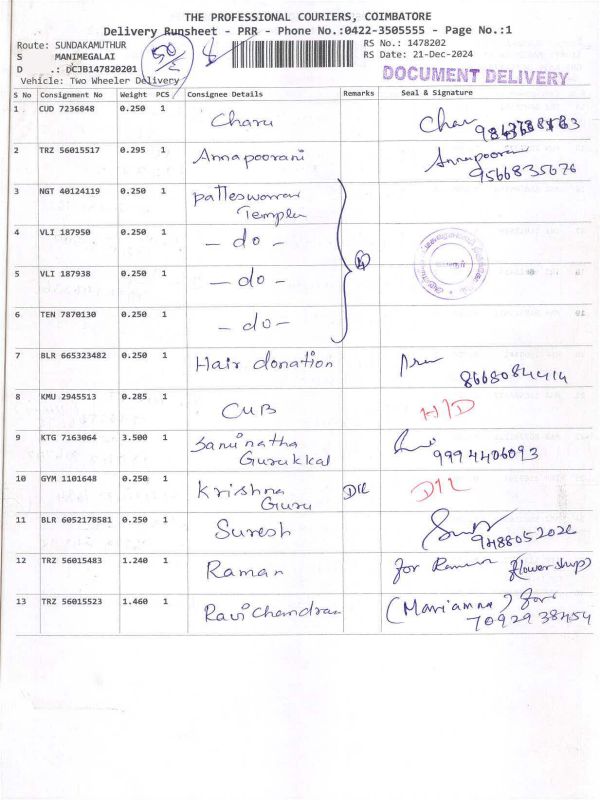 THE PROFESSIONAL COURIERS, COIMBATORE
Delivery Runsheet - PRR - Phone No.:0422-3505555 - Page No.:1
Route: SUNDAKAMUTHUR RS No.: 1478202
S MANIMEGALAI RS Date: 21-Dec-2024
D .: DCJB147820201 DOCUMENT DELIVERY
Vehicle: Two Wheeler Delivery
S No Consignment No Weight PCS Consignee Details Remarks Seal & Signature
1 CUD 7236848 0.250 1 Charu
2 TRZ 56015517 0.295 1 Annapoorani
9566835676
3 NGT 40124119 0.250 1
4 VLI 187950 0.250 1 - do -
5 VLI 187938 0.250 1 - do -
6 TEN 7870130 0.250 1 - do -
7 BLR 665323482 0.250 1 Hair donation
8668084414
8 KMU 2945513 0.285 1 CUB H/D
9 KTG 7163064 3.500 1
Gurukkal 9994406093
10 GYM 1101648 0.250 1 Krishna D/L D/L
Guru
11 BLR 6052178581 0.250 1 Suresh
12 TRZ 56015483 1.240 1 Raman for Raman (flower shup)
13 TRZ 56015523 1.460 1 Ravichandran (Mariamma) for
7092938454